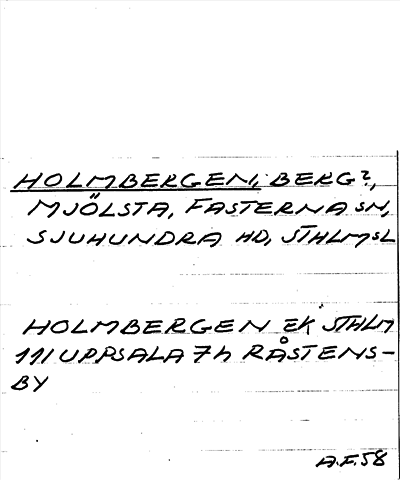 HOLMBERGEN, BERG?,
MJÖLSTA, FASTERNA SN,
SJUHUNDRA HD, STHLMSL
HOLMBERGEN EK STHLM
111 UPPSALA 7h RÅSTENS-
BY
A.F.58